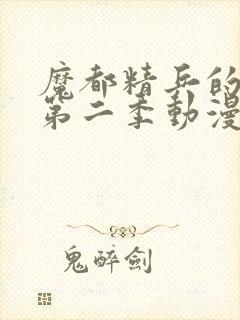 魔都精兵的
第二季動漫
鬼醉劍